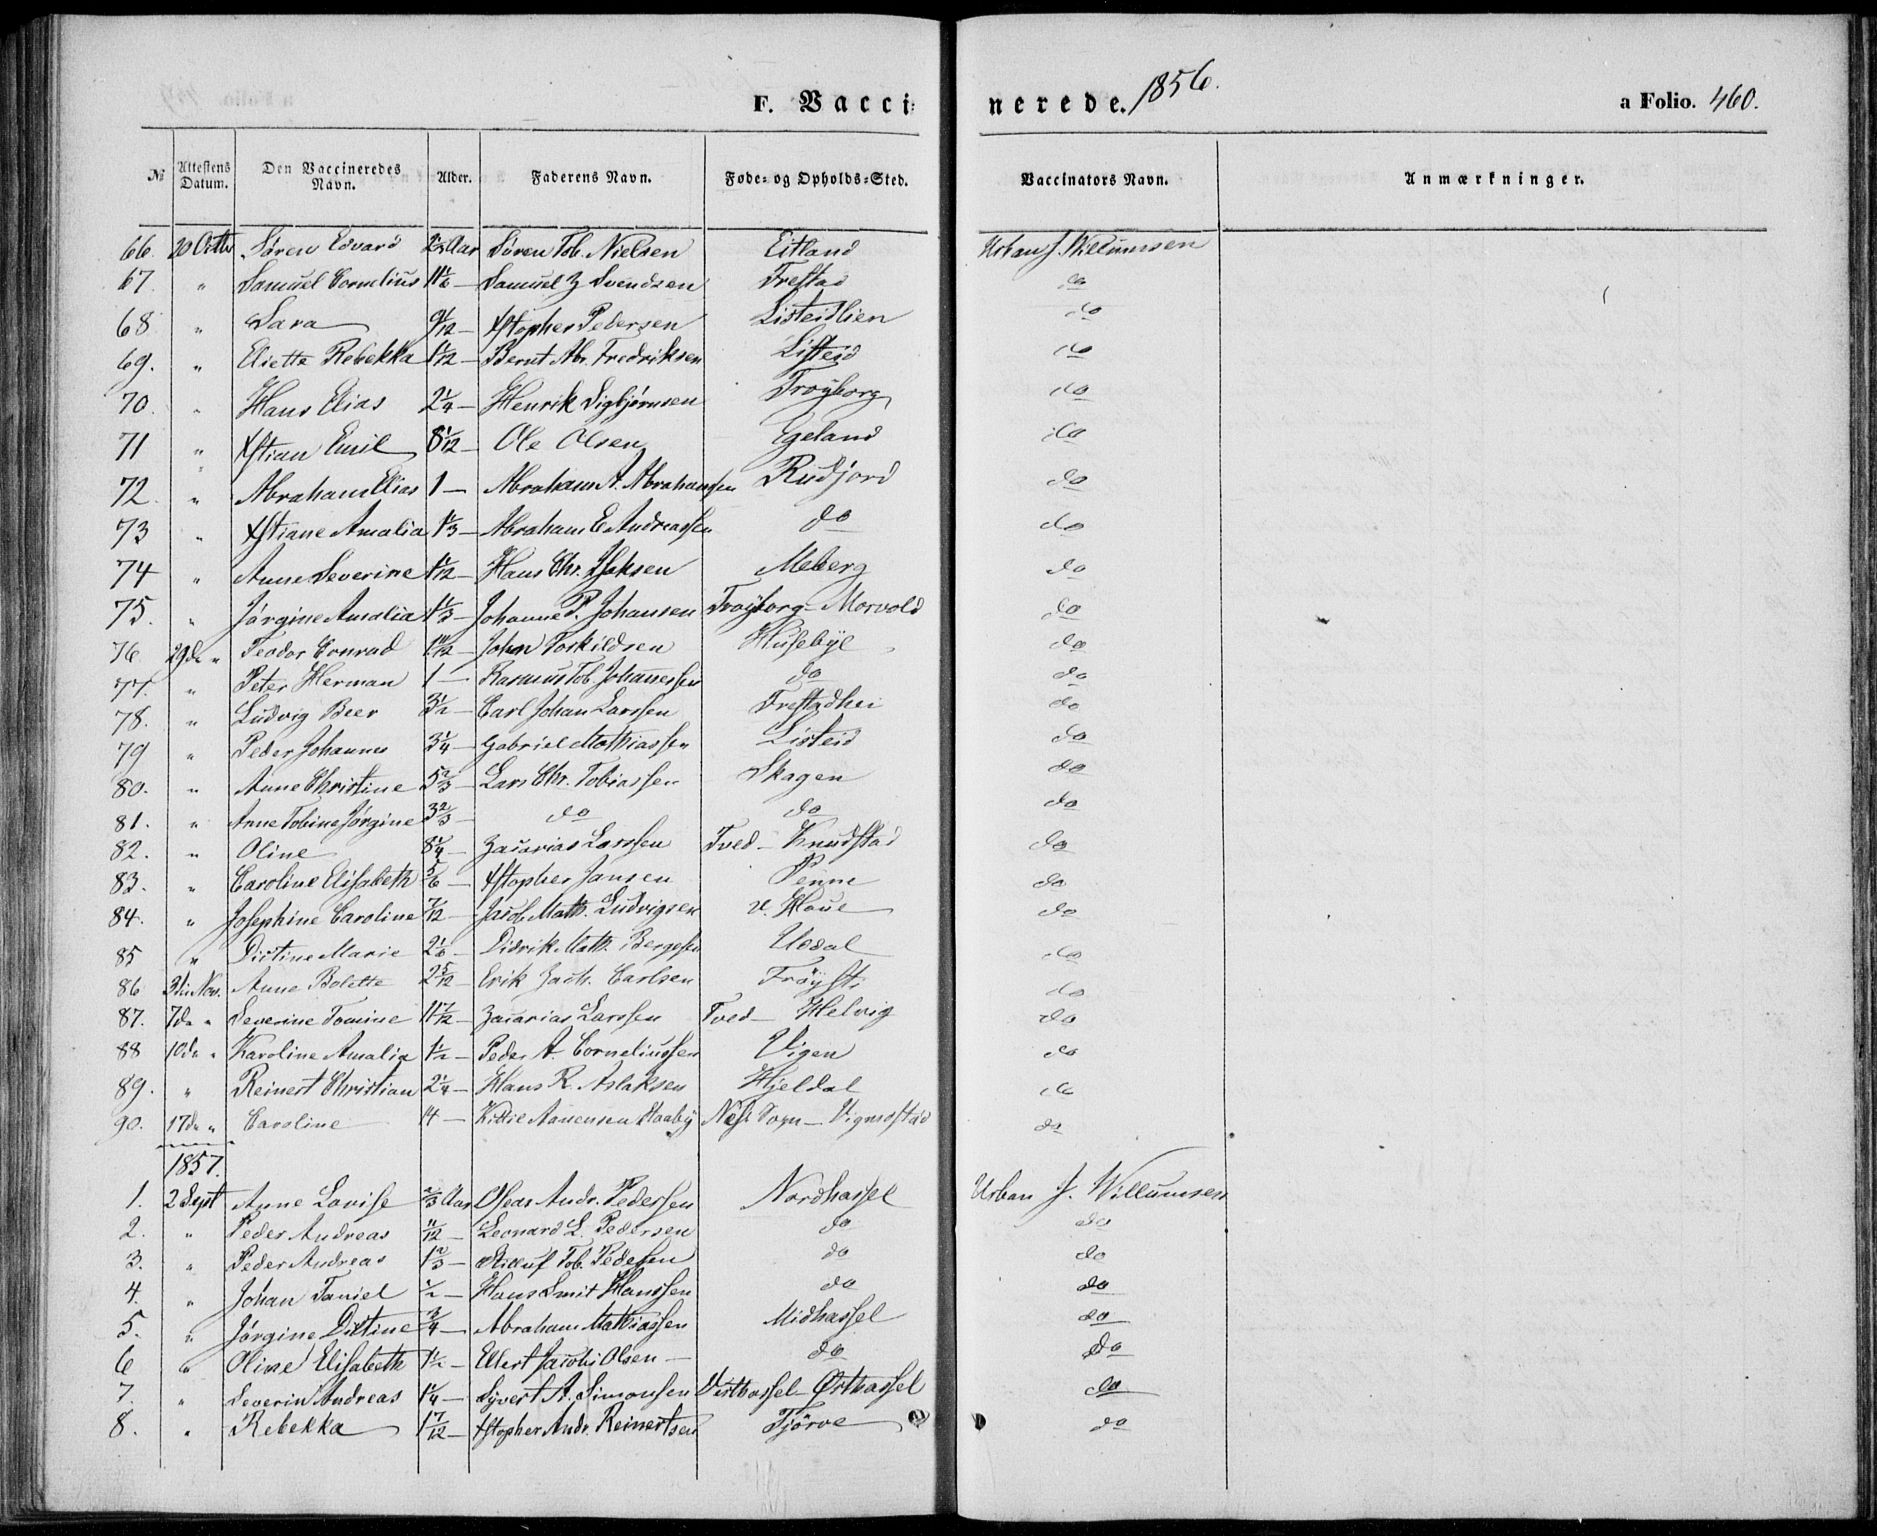 F. Vaccinerede. 1856. a Folio. 460.
№ Attestens Datum. Den Vaccineredes Navn. Alder. Faderens Navn. Føde- og Opholds-Sted. Vaccinators Navn. Anmærkninger.
66. 20 Octbr Søren Edvard Aar Søren Tob. Nielsen Eitland Urban J. Willumsen
67. " Samuel Cornelius 11 1/6 — Samuel Z Svendsen Frestad do
68 " Sara 9/12 — Xstopher Pedersen Listeidlien do
69. " Eliette Rebekka 1 1/12 — Bernt Ab. Fredriksen Listeid do
70. " Hans Elias 2 1/4 — Henrik Sigbjørnsen Frøyborg do
71 " Xstian Emil 8 1/12 — Ole Olsen Egeland do
72. " Abraham Elias 1 — Abraham A. Abrahamsen Rudjord do
73 " Xstiane Amalia 1 1/3 — Abraham E Andreassen do do
74 " Anne Severine 1 1/12 — Hans Chr. Isaksen Meberg do
75. " Jørgine Amalia 1 1/3 — Johannes P. Johansen Frøyborg — Morvold do
76 29 do " Teodor Conrad 1 11/12 — John Torkildsen Husebye do
77. " Peter Herman 1 — Rasmus Tob. Johanessen do do
78. " Ludvig Beer 3 1/2 — Carl Johan Larssen Frestadhei do
79 " Peder Johannes 3 1/4 — Gabriel Mathiassen Listeid do
80. " Anne Christine 5 2/3 — Lars Chr. Tobiassen Skagen do
81. " Anne Tobine Jørgine 3 2/3 — do do do
82. " Oline 8 1/4 — Zacarias Larssen Tved — Knudstad do
83. " Caroline Elisabeth 5/6 — Xstopher Jansen Penne do
84. " Josephine Caroline 7/12 — Jacob Math. Ludvigsen v. Houe do
85 " Dictine Marie 2 1/6 — Didrik Math. Bergesen Uddal do
86 3die Nov. Anne Bolette 2 5/12 — Erik Zach. Carlsen Frøysti do
87. 7 do " Severine Tomine 11 7/12 — Zacarias Larssen Tved — Helvig do
88 10 do " Karoline Amalia 1 1/2 — Peder A. Corneliussen Vigen do
89. " Reinert Christian 2 1/4 — Hans R. Aslaksen Hjeldal do
90. 17 do " Caroline 14 — Kittil Aanensen Haaby Næs Sogn — Vigmostad do
1857.
1. 2 Sept Anne Lovise 2/3 Aar Oseas Andr. Pederssen Nordhassel Urban J. Willumsen
2. " Peder Andreas 11/12 — Leonard L. Pedersen do do
3. " Peder Andreas 1 2/3 — Tob. Pedersen do do
4. " Johan Daniel 1/2 — Hans Smit Hanssen do do
5. " Jørgine Dictine 3/4 — Abraham Mathiassen Midhassel do
6 " Oline Elisabeth 1 1/2 — Ellert Jacobi Olsen — do do
7. " Severin Andreas 1 1/4 — Syvert A. Simonsen Vesthassel — Østhassel do
8. " Rebekka 1 7/12 — Xstopher Andr. Reinertsen Tjørve do